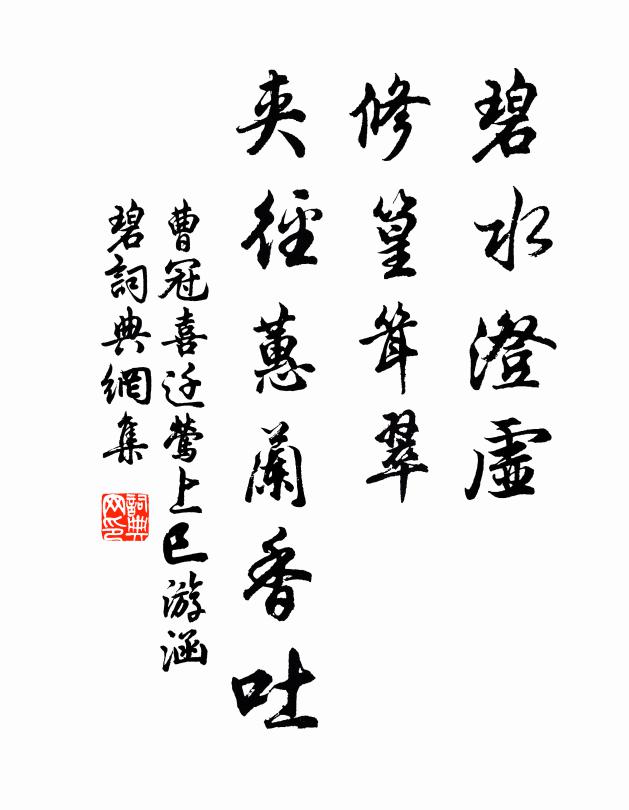 碧水澄虛
修篁聳翠
夾徑蕙蘭香吐
曹冠喜迁鶯上巳游涵
碧詞典網集
詞典网印